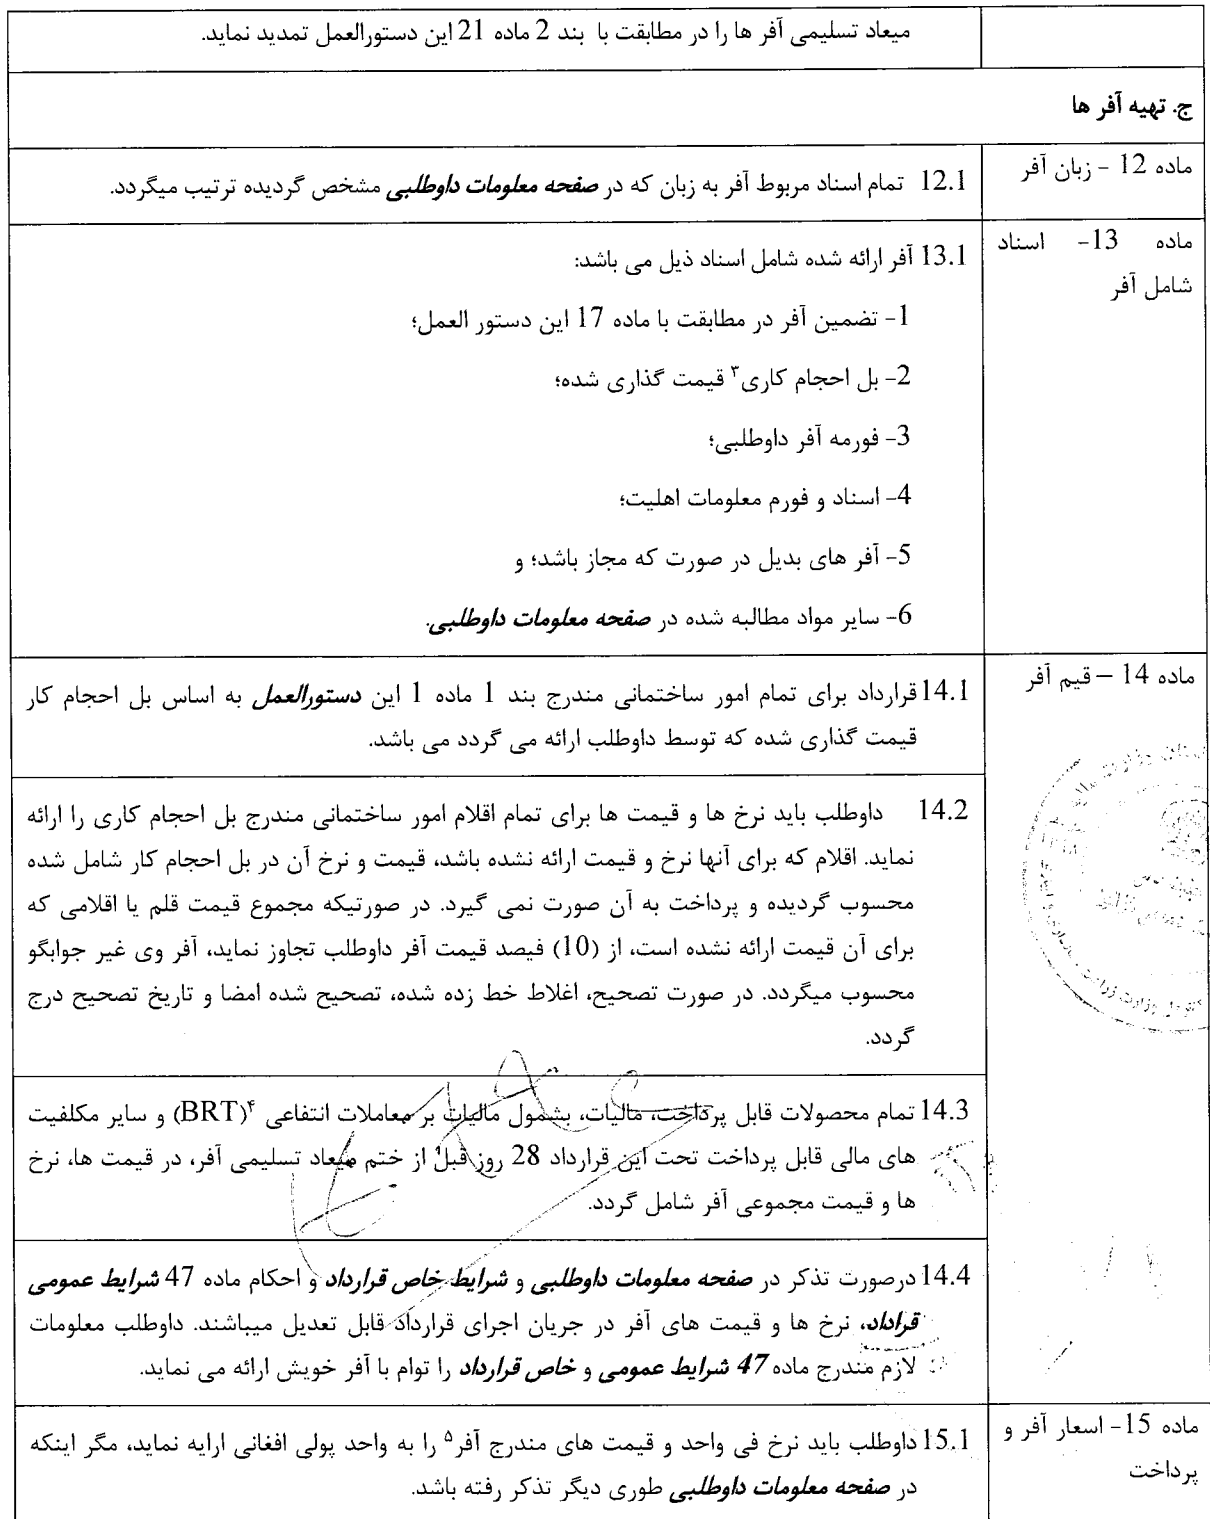 میعاد تسلیمی آفر ها را در مطابقت با بند 2 ماده 21 این دستورالعمل تمدید نماید.
ج. تهیه آفر ها
ماده 12 - زبان آفر
12.1 تمام اسناد مربوط آفر به زبان که در صفحه معلومات داوطلبی مشخص گردیده ترتیب میگردد.
ماده 13- اسناد
شامل آفر
13.1 آفر ارائه شده شامل اسناد ذیل می باشد:
1- تضمین آفر در مطابقت با ماده 17 این دستور العمل؛
2- بل احجام کاری۳ قیمت گذاری شده؛
3- فورمه آفر داوطلبی؛
4- اسناد و فورم معلومات اهلیت؛
5- آفر های بدیل در صورت که مجاز باشد؛ و
6- سایر مواد مطالبه شده در صفحه معلومات داوطلبی.
ماده 14 – قیم آفر
14.1 قرارداد برای تمام امور ساختمانی مندرج بند 1 ماده 1 این دستورالعمل به اساس بل احجام کار
قیمت گذاری شده که توسط داوطلب ارائه می گردد می باشد.
14.2 داوطلب باید نرخ ها و قیمت ها برای تمام اقلام امور ساختمانی مندرج بل احجام کاری را ارائه
نماید. اقلام که برای آنها نرخ و قیمت ارائه نشده باشد، قیمت و نرخ آن در بل احجام کار شامل شده
محسوب گردیده و پرداخت به آن صورت نمی گیرد. در صورتیکه مجموع قیمت قلم یا اقلامی که
برای آن قیمت ارائه نشده است، از (10) فیصد قیمت آفر داوطلب تجاوز نماید، آفر وی غیر جوابگو
محسوب میگردد. در صورت تصحیح، اغلاط خط زده شده، تصحیح شده امضا و تاریخ تصحیح درج
گردد.
14.3 تمام محصولات قابل پرداخت، مالیات، بشمول مالیات بر معاملات انتفاعی ۴(BRT) و سایر مکلفیت
های مالی قابل پرداخت تحت این قرارداد 28 روز قبل از ختم میعاد تسلیمی آفر، در قیمت ها، نرخ
ها و قیمت مجموعی آفر شامل گردد.
14.4 درصورت تذکر در صفحه معلومات داوطلبی و شرایط خاص قرارداد و احکام ماده 47 شرایط عمومی
قراداد، نرخ ها و قیمت های آفر در جریان اجرای قرارداد قابل تعدیل میباشند. داوطلب معلومات
لازم مندرج ماده 47 شرایط عمومی و خاص قرارداد را توام با آفر خویش ارائه می نماید.
ماده 15- اسعار آفر و
پرداخت
15.1 داوطلب باید نرخ فی واحد و قیمت های مندرج آفر۵ را به واحد پولی افغانی ارایه نماید، مگر اینکه
در صفحه معلومات داوطلبی طوری دیگر تذکر رفته باشد.